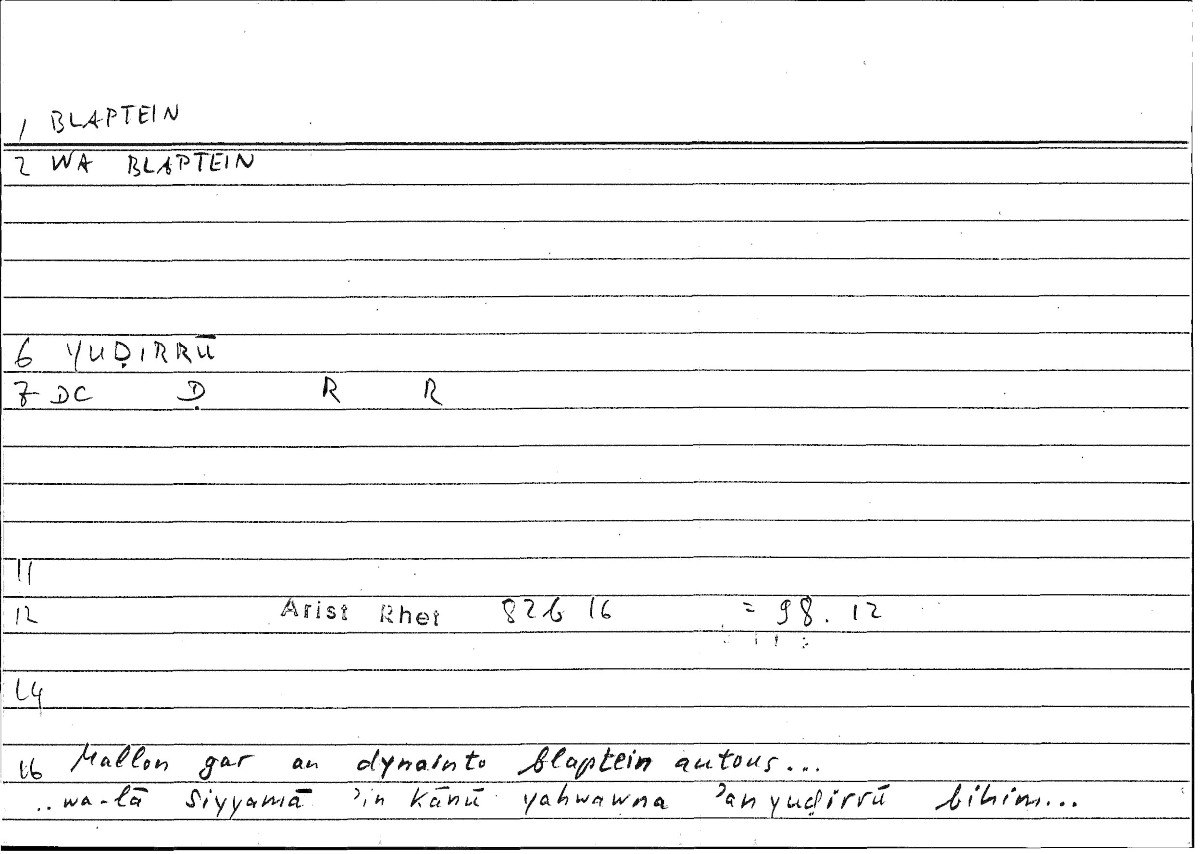 1 BLAPTEIN
2 WA BLAPTEIN
6 YUḌIRRŪ
7 DC Ḍ R R
11
12 Arist Rhet 82b 16 = 98. 12
14
16 Mallon gar an dynainto blaptein autous...
..wa-lā siyyamā ʾin kānū yahwawna ʾan yuḍirrū bihim...